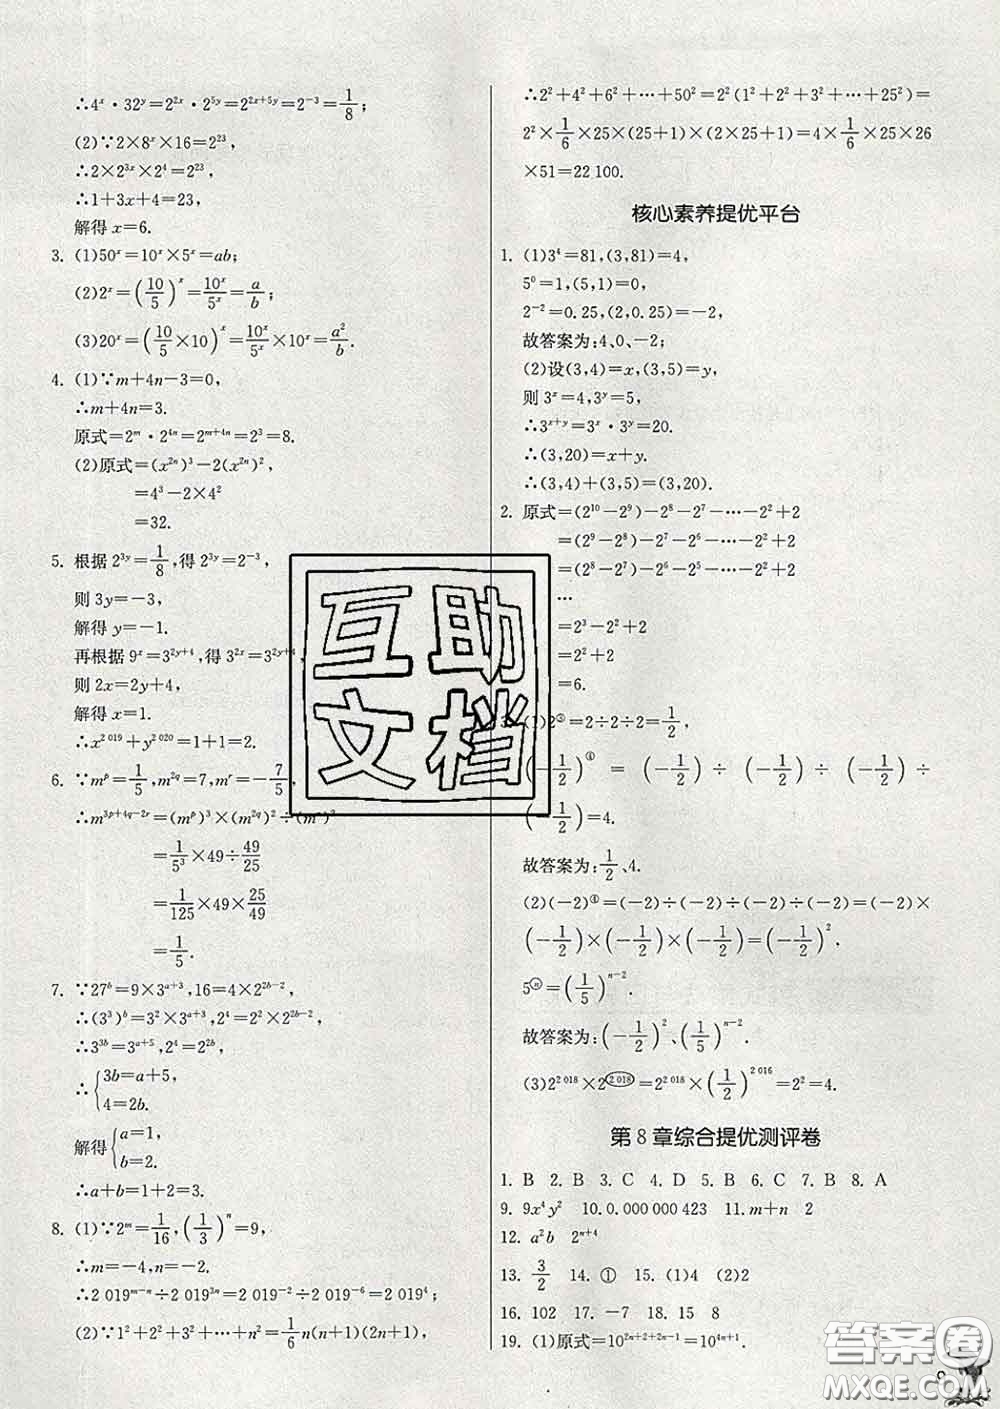 ∴4ˣ·32ʸ=2²ˣ·2⁵ʸ=2²ˣ⁺⁵ʸ=2⁻³=1/8;
(2)∵2×8ˣ×16=2²³,
∴2×2³ˣ×2⁴=2²³,
∴1+3x+4=23,
解得 x=6.
3. (1)50ˣ=10ˣ×5ˣ=ab;
(2)2ˣ=(10/5)ˣ=10ˣ/5ˣ=a/b;
(3)20ˣ=(10/5×10)ˣ=10ˣ/5ˣ×10ˣ=a²/b.
4. (1)∵m+4n-3=0,
∴m+4n=3.
原式=2ᵐ·2⁴ⁿ=2ᵐ⁺⁴ⁿ=2³=8.
(2)原式=(x²ⁿ)³-2(x²ⁿ)²,
=4³-2×4²
=32.
5. 根据 2³ʸ=1/8,得 2³ʸ=2⁻³,
则 3y=-3,
解得 y=-1.
再根据 9ˣ=3²ʸ⁺⁴,得 3²ˣ=3²ʸ⁺⁴,
则 2x=2y+4,
解得 x=1.
∴x^(2 019)+y^(2 020)=1+1=2.
6. ∵mᵖ=1/5,m^(2q)=7,mʳ=-7/5,
∴m^(3p+4q-2r)=(mᵖ)³×(m^(2q))²÷(mʳ)²
=1/5³×49÷49/25
=1/125×49×25/49
=1/5.
7. ∵27ᵇ=9×3ᵃ⁺³,16=4×2^(2b-2),
∴(3³)ᵇ=3²×3ᵃ⁺³,2⁴=2²×2^(2b-2),
∴3^(3b)=3ᵃ⁺⁵,2⁴=2^(2b),
∴{3b=a+5,
4=2b.
解得{a=1,
b=2.
∴a+b=1+2=3.
8. (1)∵2ᵐ=1/16,(1/3)ⁿ=9,
∴m=-4,n=-2.
∴2 019ᵐ⁻ⁿ÷2 019³ⁿ=2 019⁻²÷2 019⁻⁶=2 019⁴;
(2)∵1²+2²+3²+…+n²=1/6n(n+1)(2n+1),
∴2²+4²+6²+…+50²=2²(1²+2²+3²+…+25²)=
2²×1/6×25×(25+1)×(2×25+1)=4×1/6×25×26
×51=22 100.
核心素养提优平台
1. (1)3⁴=81,(3,81)=4,
5⁰=1,(5,1)=0,
2⁻²=0.25,(2,0.25)=-2,
故答案为:4、0、-2;
(2)设(3,4)=x,(3,5)=y,
则 3ˣ=4,3ʸ=5,
∴3ˣ⁺ʸ=3ˣ·3ʸ=20.
∴(3,20)=x+y.
∴(3,4)+(3,5)=(3,20).
2. 原式=(2¹⁰-2⁹)-2⁸-2⁷-…-2²+2
=(2⁹-2⁸)-2⁷-2⁶-…-2²+2
=(2⁸-2⁷)-2⁶-2⁵-…-2²+2
…
=2³-2²+2
=2²+2
=6.
3. (1)2^③=2÷2÷2=1/2,
(-1/2)^④=(-1/2)÷(-1/2)÷(-1/2)÷
(-1/2)=4.
故答案为:1/2、4.
(2)(-2)^④=(-2)÷(-2)÷(-2)÷(-2)=(-2)×
(-1/2)×(-1/2)×(-1/2)=(-1/2)²,
5^ⓝ=(1/5)ⁿ⁻².
故答案为:(-1/2)²、(1/5)ⁿ⁻².
(3)2^(2 018)×2^(2 018)=2^(2 018)×(1/2)^(2 016)=2²=4.
第 8 章综合提优测评卷
1. B 2. B 3. C 4. D 5. B 6. C 7. B 8. A
9. 9x⁴y² 10. 0.000 000 423 11. m+n 2
12. a²b 2ⁿ⁺⁴
13. 3/2 14. ① 15. (1)4 (2)2
16. 102 17. -7 18. 15 8
19. (1)原式=10^(2n+2+2n-1)=10⁴ⁿ⁺¹.
互助
文档
答案圈
MXQE.COM